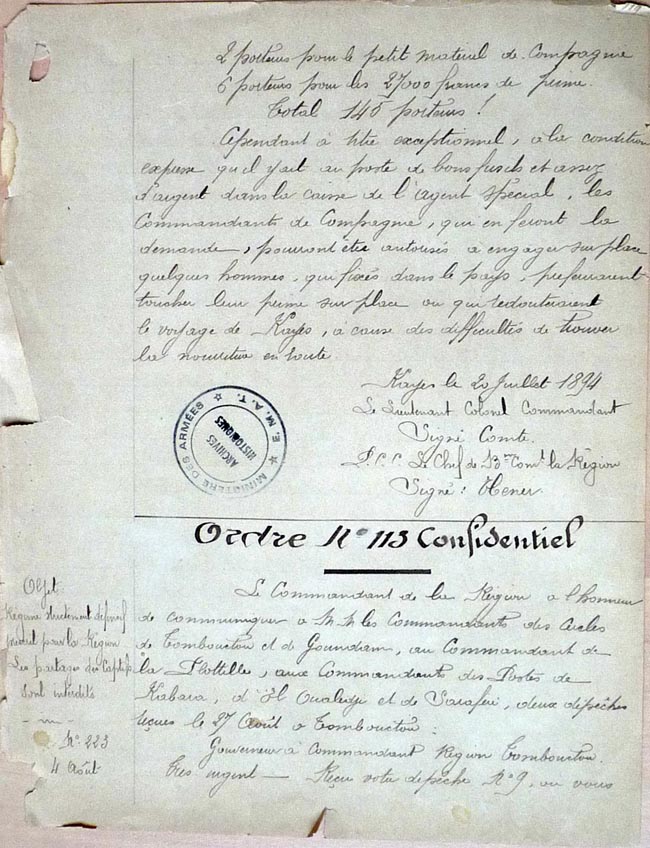 2 porteurs pour le petit materiel de Compagnie
6 porteurs pour les 27000 francs de prime.
Total 145 porteurs !
Cependant à titre exceptionnel, à la condition
expresse qu'il y ait au poste de bons fusils et assez
d'argent dans la caisse de l'agent spécial, les
Commandants de Compagnie, qui en feront la
demande, pourront être autorisés à engager sur place
quelques hommes, qui fixés dans le pays, préfèreraient
toucher leur prime sur place ou qui redouteraient
le voyage de Kayes, à cause des difficultés de trouver
la nourriture en route.
Kayes le 20 Juillet 1894
Le Lieutenant Colonel Commandant
Signé Comte.
P.C.C. Le Chef de B.on Com.t la Région
Signé :
MINISTÈRE DES ARMÉES
E. M. A. T.
ARCHIVES
HISTORIQUES
Ordre N° 113 Confidentiel
Objet
Régime strictement défensif
prescrit pour la Région
Les partages des Captifs
sont interdits
N° 223
4 Août
Le Commandant de la Région a l'honneur
de communiquer à M.M. les Commandants des Cercles
de Tombouctou et de Goundam, au Commandant de
la Flottille, aux Commandants des Postes de
Kabara, d'El Oualedji et de Saraféré, deux dépêches
reçues le 27 Août à Tombouctou :
Gouverneur à Commandant Région Tombouctou.
Très urgent — Reçu votre dépêche N° 9, où vous